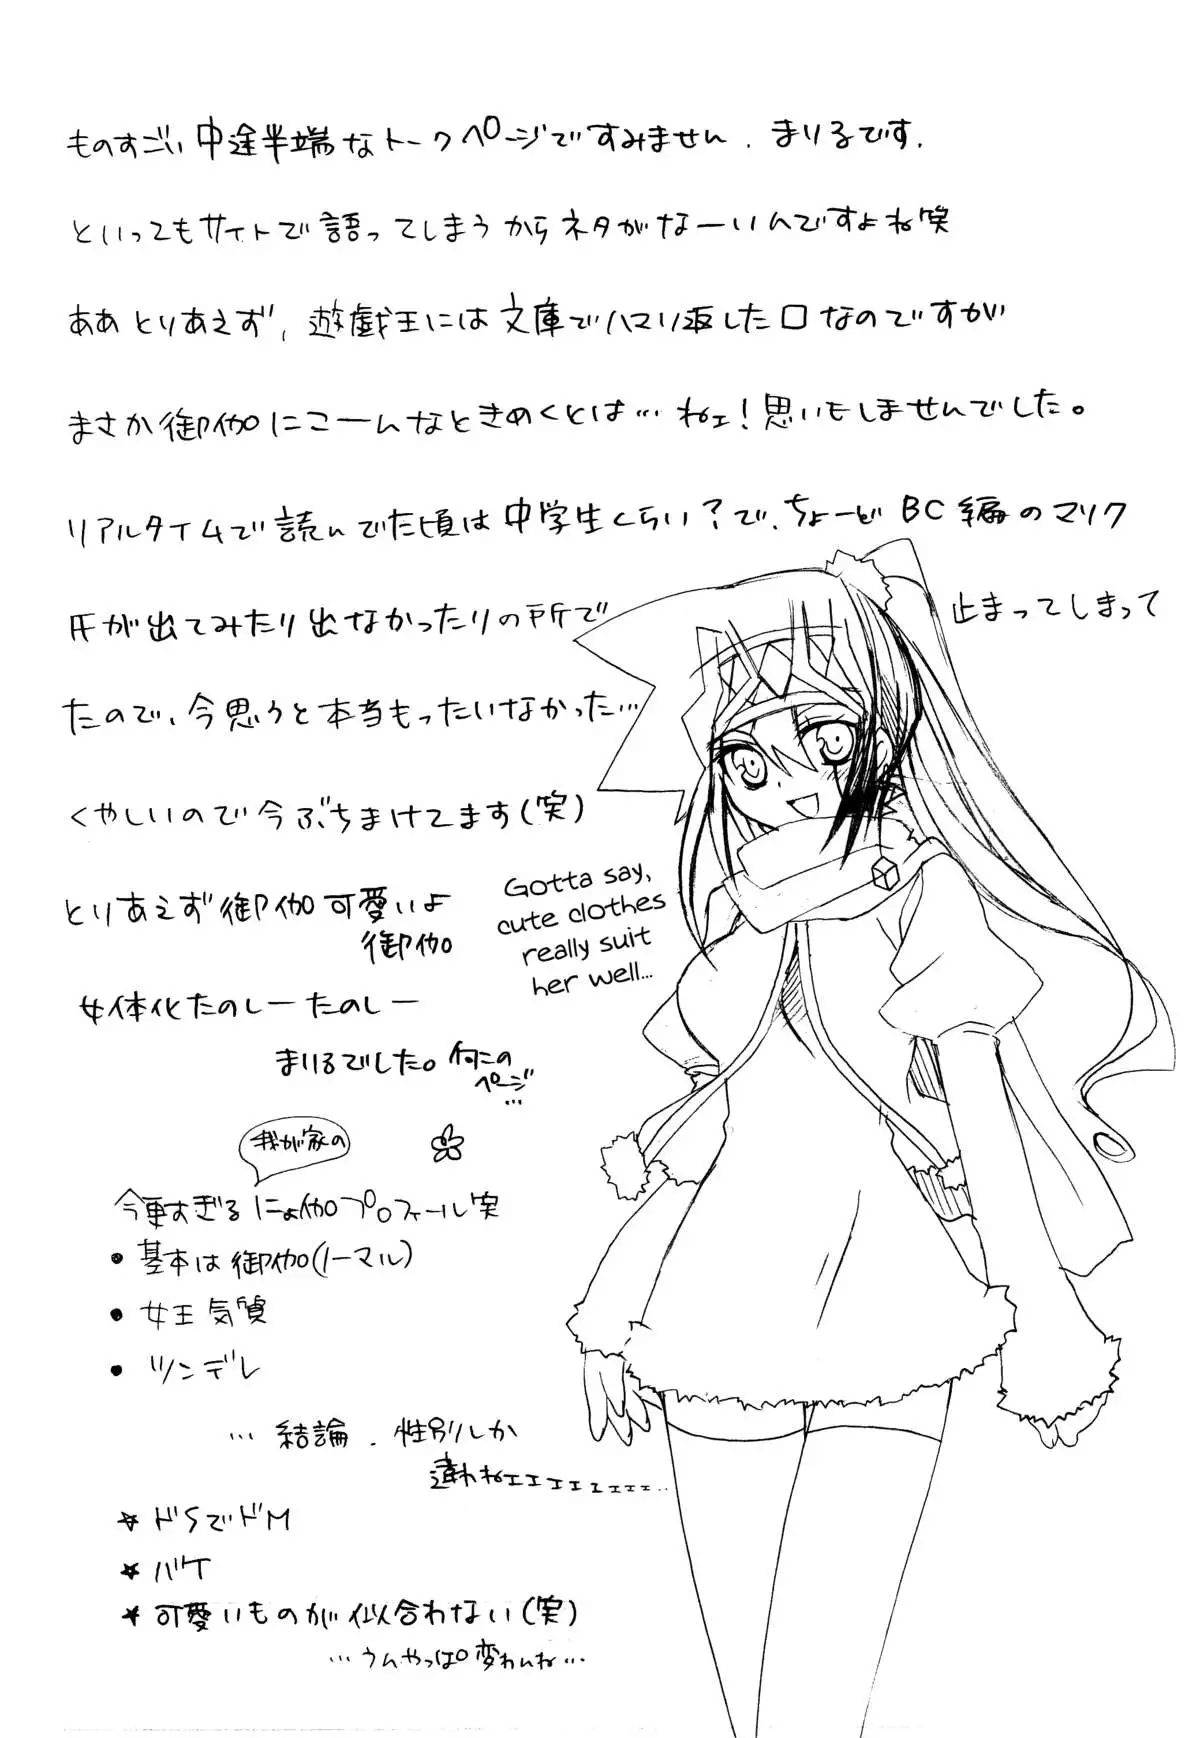 ものすごい中途半端なトークページですみません．まりるです．
といってもサイトで語ってしまうからネタがなーいんですよね笑
ああとりあえず、遊戯王には文庫でハマり返した口なのですが
まさか御伽にこーんなときめくとは…ねェ！思いもしませんでした。
リアルタイムで読んでた頃は中学生くらい？で、ちょーどBC編のマリク
氏が出てみたり出なかったりの所で 止まってしまって
たので、今思うと本当もったいなかった…
くやしいので今ぶちまけてます(笑)
とりあえず御伽可愛いよ
御伽
女体化たのしーたのしー
まりるでした。何この
ページ
…
Gotta say,
cute clothes
really suit
her well...
我が家の
今更すぎるにょ伽プロフィール笑
・基本は御伽(ノーマル)
・女王気質
・ツンデレ
…結論．性別しか
違わねェェェェェェェェ…
★ドSでドM
★バケ
★可愛いものが似合わない(笑)
…うんやっぱ変わんね…